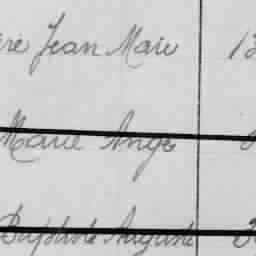 Jean Marie 13
Marie Ange
Baptiste Auguste 3